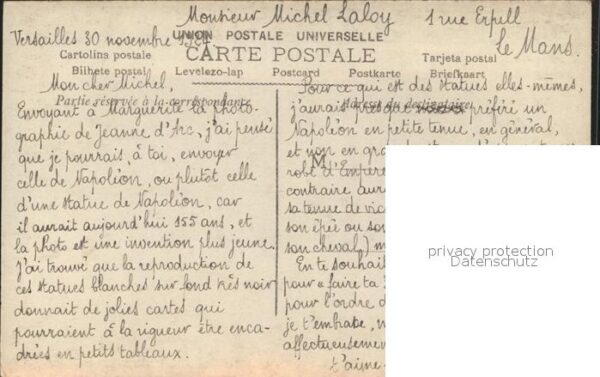 Monsieur Michel Laloy 1 rue Erpell
Le Mans.
Versailles 30 novembre 1924
UNION POSTALE UNIVERSELLE
CARTE POSTALE
Cartolina postale Tarjeta postal
Bilhete postal Levelezo-lap Postcard Postkarte Briefkaart
Partie réservée à la correspondance
Adresse du destinataire
Mon cher Michel,
Envoyant à Marguerite la photo-
graphie de Jeanne d'Arc, j'ai pensé
que je pourrais, à toi, envoyer
celle de Napoléon, ou plutôt celle
d'une statue de Napoléon, car
il aurait aujourd'hui 155 ans, et
la photo est une invention plus jeune.
J'ai trouvé que la reproduction de
ces statues blanches sur fond très noir
donnait de jolies cartes qui
pourraient à la rigueur être enca-
drées en petits tableaux.
Pour ce qui est des statues elles-mêmes,
j'aurais presque préféré un
Napoléon en petite tenue, en général,
et non en gran
M
robe d'Empere
contraire aur
sa tenue de vic
son épée ou so
son cheval,) m
En te souhait
pour "faire ta
pour l'ordre d
je t'embrasse, n
affectueusemen
t'aime
privacy protection
Datenschutz